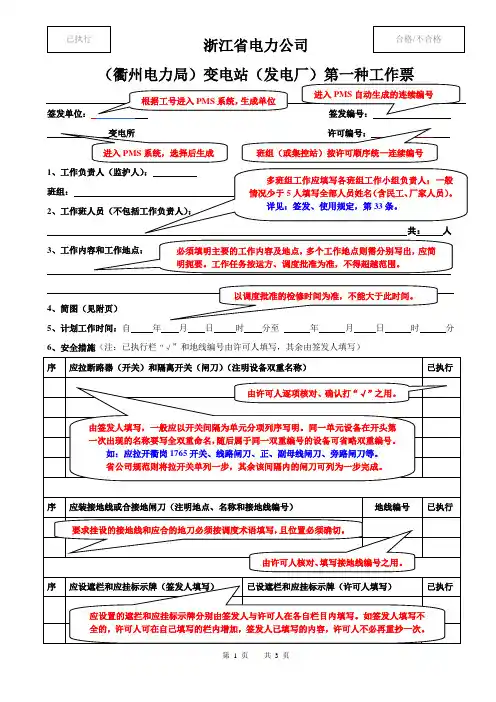 已执行
浙江省电力公司
合格/不合格
（衢州电力局）变电站（发电厂）第一种工作票
根据工号进入PMS系统，生成单位
进入PMS自动生成的连续编号
签发单位：
签发编号：
变电所
许可编号：
进入PMS系统，选择后生成
班组（或集控站）按许可顺序统一连续编号
1、工作负责人（监护人）：
班组：
多班组工作应填写各班组工作小组负责人；一般
情况少于5人填写全部人员姓名（含民工、厂家人员）。
详见：签发、使用规定，第33条。
2、工作班人员（不包括工作负责人）：
共： 人
3、工作内容和工作地点：
必须填明主要的工作内容及地点，多个工作地点则需分别写出，应简
明扼要。工作任务按运方、调度批准为准，不得超越范围。
以调度批准的检修时间为准，不能大于此时间。
4、简图（见附页）
5、计划工作时间：自 年 月 日 时 分至 年 月 日 时 分
6、安全措施（注：已执行栏“√”和地线编号由许可人填写，其余由签发人填写）
序 应拉断路器（开关）和隔离开关（闸刀）（注明设备双重名称） 已执行
由许可人逐项核对、确认打“√”之用。
由签发人填写，一般应以开关间隔为单元分项列序写明。同一单元设备在开头第
一次出现的名称要写全双重命名，随后属于同一双重编号的设备可省略双重编号。
如：应拉开衢岗1765开关、线路闸刀、正、副母线闸刀、旁路闸刀等。
省公司规范则将拉开关单列一步，其余该间隔内的闸刀可列为一步完成。
序 应装接地线或合接地闸刀（注明地点、名称和接地线编号） 地线编号 已执行
要求挂设的接地线和应合的地刀必须按调度术语填写，且位置必须确切。
由许可人核对、填写接地线编号之用。
序 应设遮栏和应挂标示牌（签发人填写） 已设遮栏和应挂标示牌（许可人填写） 已执行
应设置的遮栏和应挂标示牌分别由签发人与许可人在各自栏目内填写。如签发人填写不
全的，许可人可在自己填写的栏内增加，签发人已填写的内容，许可人不必再重抄一次。
第 1 页 共 3 页